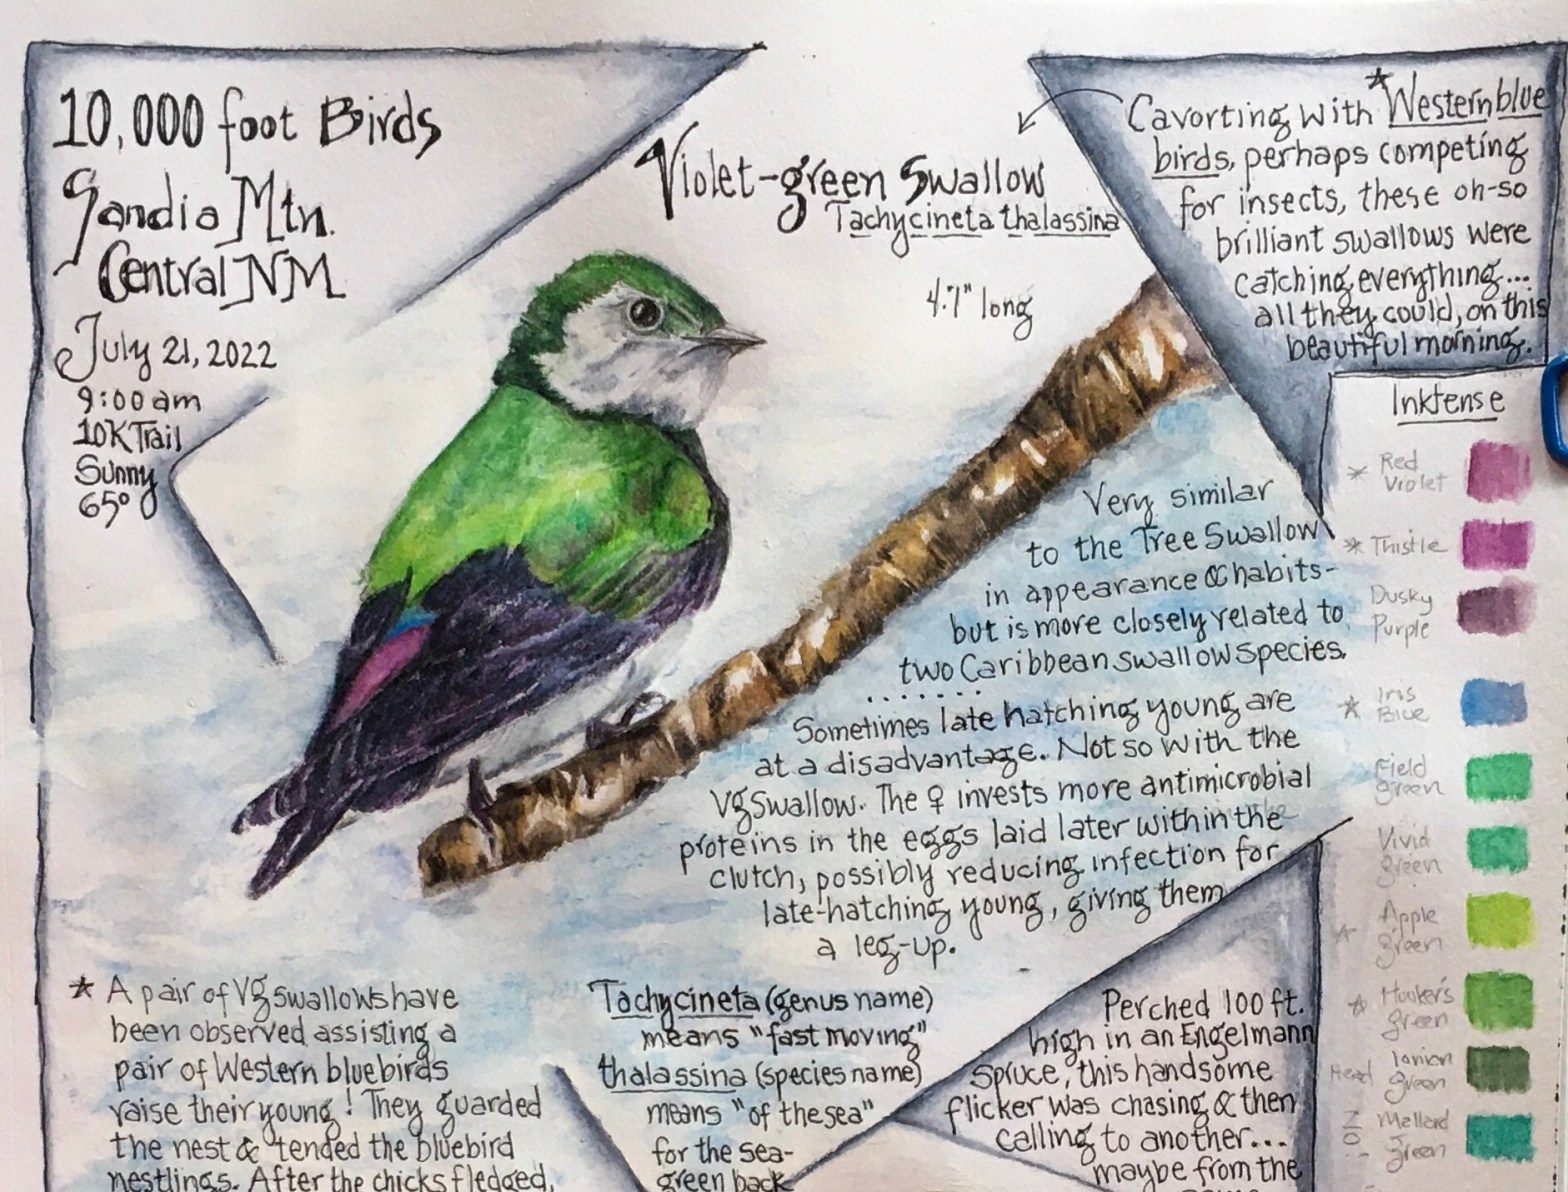 10,000 foot Birds
Sandia Mtn.
Central NM
July 21, 2022
9:00am
10K Trail
Sunny
65°
Violet-green Swallow
Tachycineta thalassina
4.7" long
Cavorting with *Western blue
birds, perhaps competing
for insects, these oh-so
brilliant swallows were
catching everything...
all they could, on this
beautiful morning.
Inktense
* Red
Violet
* Thistle
Dusky
Purple
* Iris
Blue
Field
green
Vivid
green
* Apple
green
* Hooker's
green
Head Ionian
green
No! Mallard
green
Very similar
to the Tree Swallow
in appearance & habits-
but is more closely related to
two Caribbean swallow species.
........
Sometimes late hatching young are
at a disadvantage. Not so with the
VgSwallow. The ♀ invests more antimicrobial
proteins in the eggs laid later within the
clutch, possibly reducing infection for
late-hatching young, giving them
a leg-up.
* A pair of Vg swallows have
been observed assisting a
pair of Western bluebirds
raise their young! They guarded
the nest & tended the bluebird
nestlings. After the chicks fledged,
Tachycineta (genus name)
means "fast moving"
thalassina (species name)
means "of the sea"
for the sea-
green back
Perched 100 ft.
high in an Engelmann
Spruce, this handsome
flicker was chasing & then
calling to another...
maybe from the